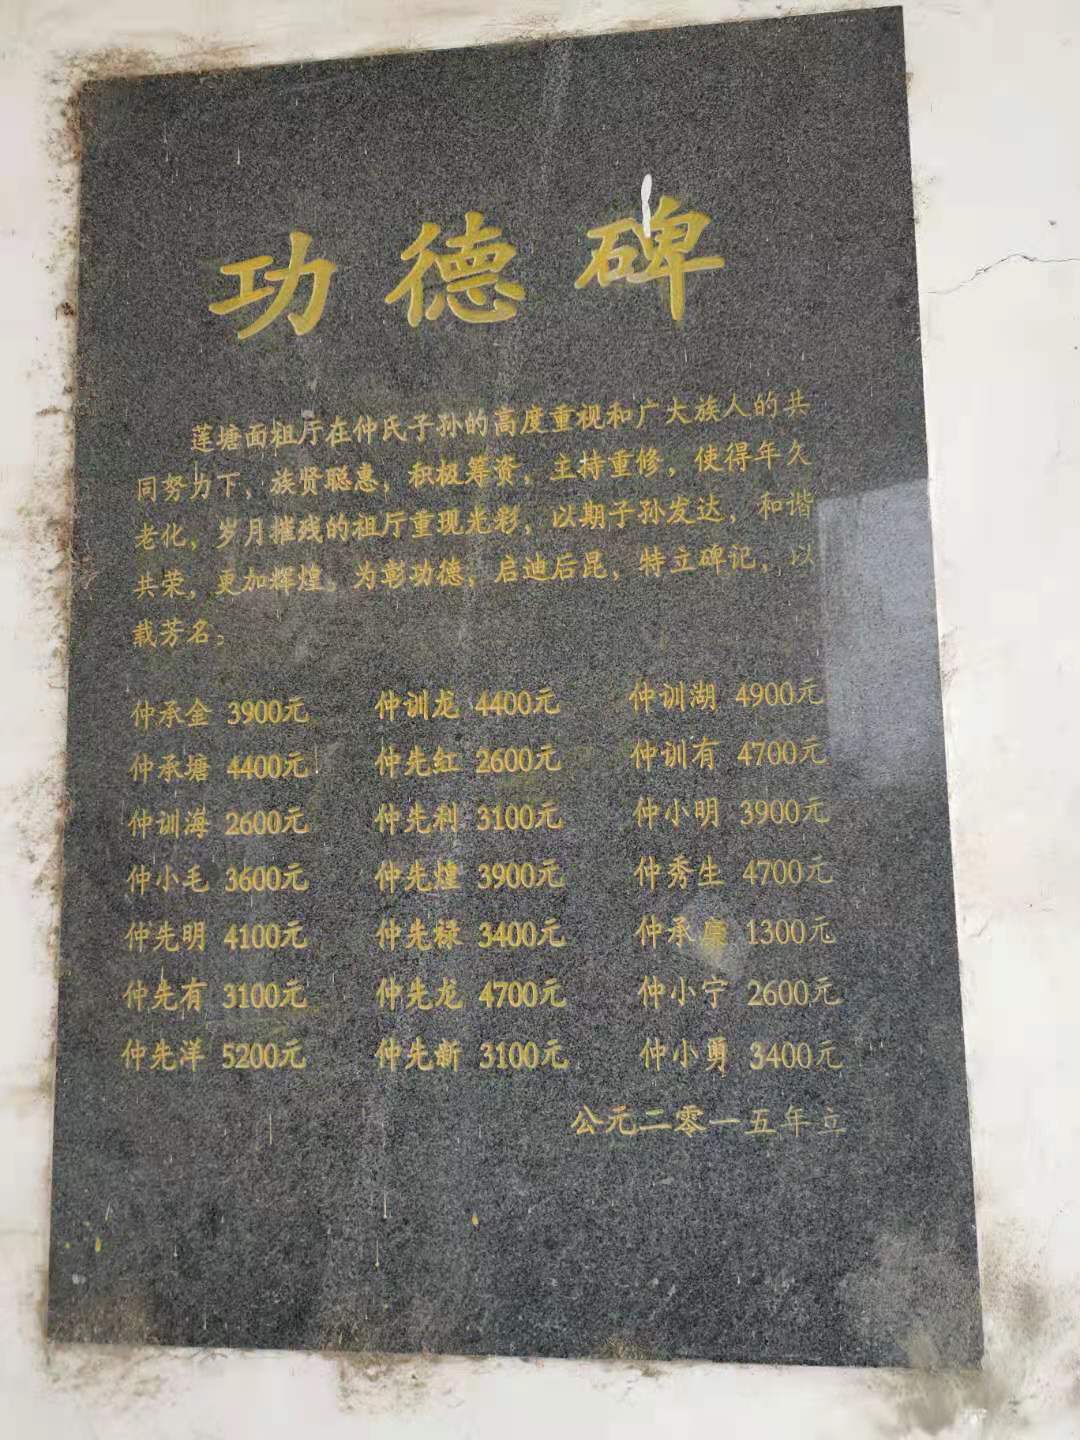 功德碑
莲塘面祖厅在仲氏子孙的高度重视和广大族人的共
同努力下，族贤聪惠，积极筹资，主持重修，使得年久
老化，岁月摧残的祖厅重现光彩，以期子孙发达，和谐
共荣，更加辉煌。为彰功德，启迪后昆，特立碑记，以
载芳名；
仲承金 3900元 仲训龙 4400元 仲训湖 4900元
仲承塘 4400元 仲先红 2600元 仲训有 4700元
仲训海 2600元 仲先利 3100元 仲小明 3900元
仲小毛 3600元 仲先煌 3900元 仲秀生 4700元
仲先明 4100元 仲先禄 3400元 仲承 1300元
仲先有 3100元 仲先龙 4700元 仲小宁 2600元
仲先洋 5200元 仲先新 3100元 仲小勇 3400元
公元二零一五年立